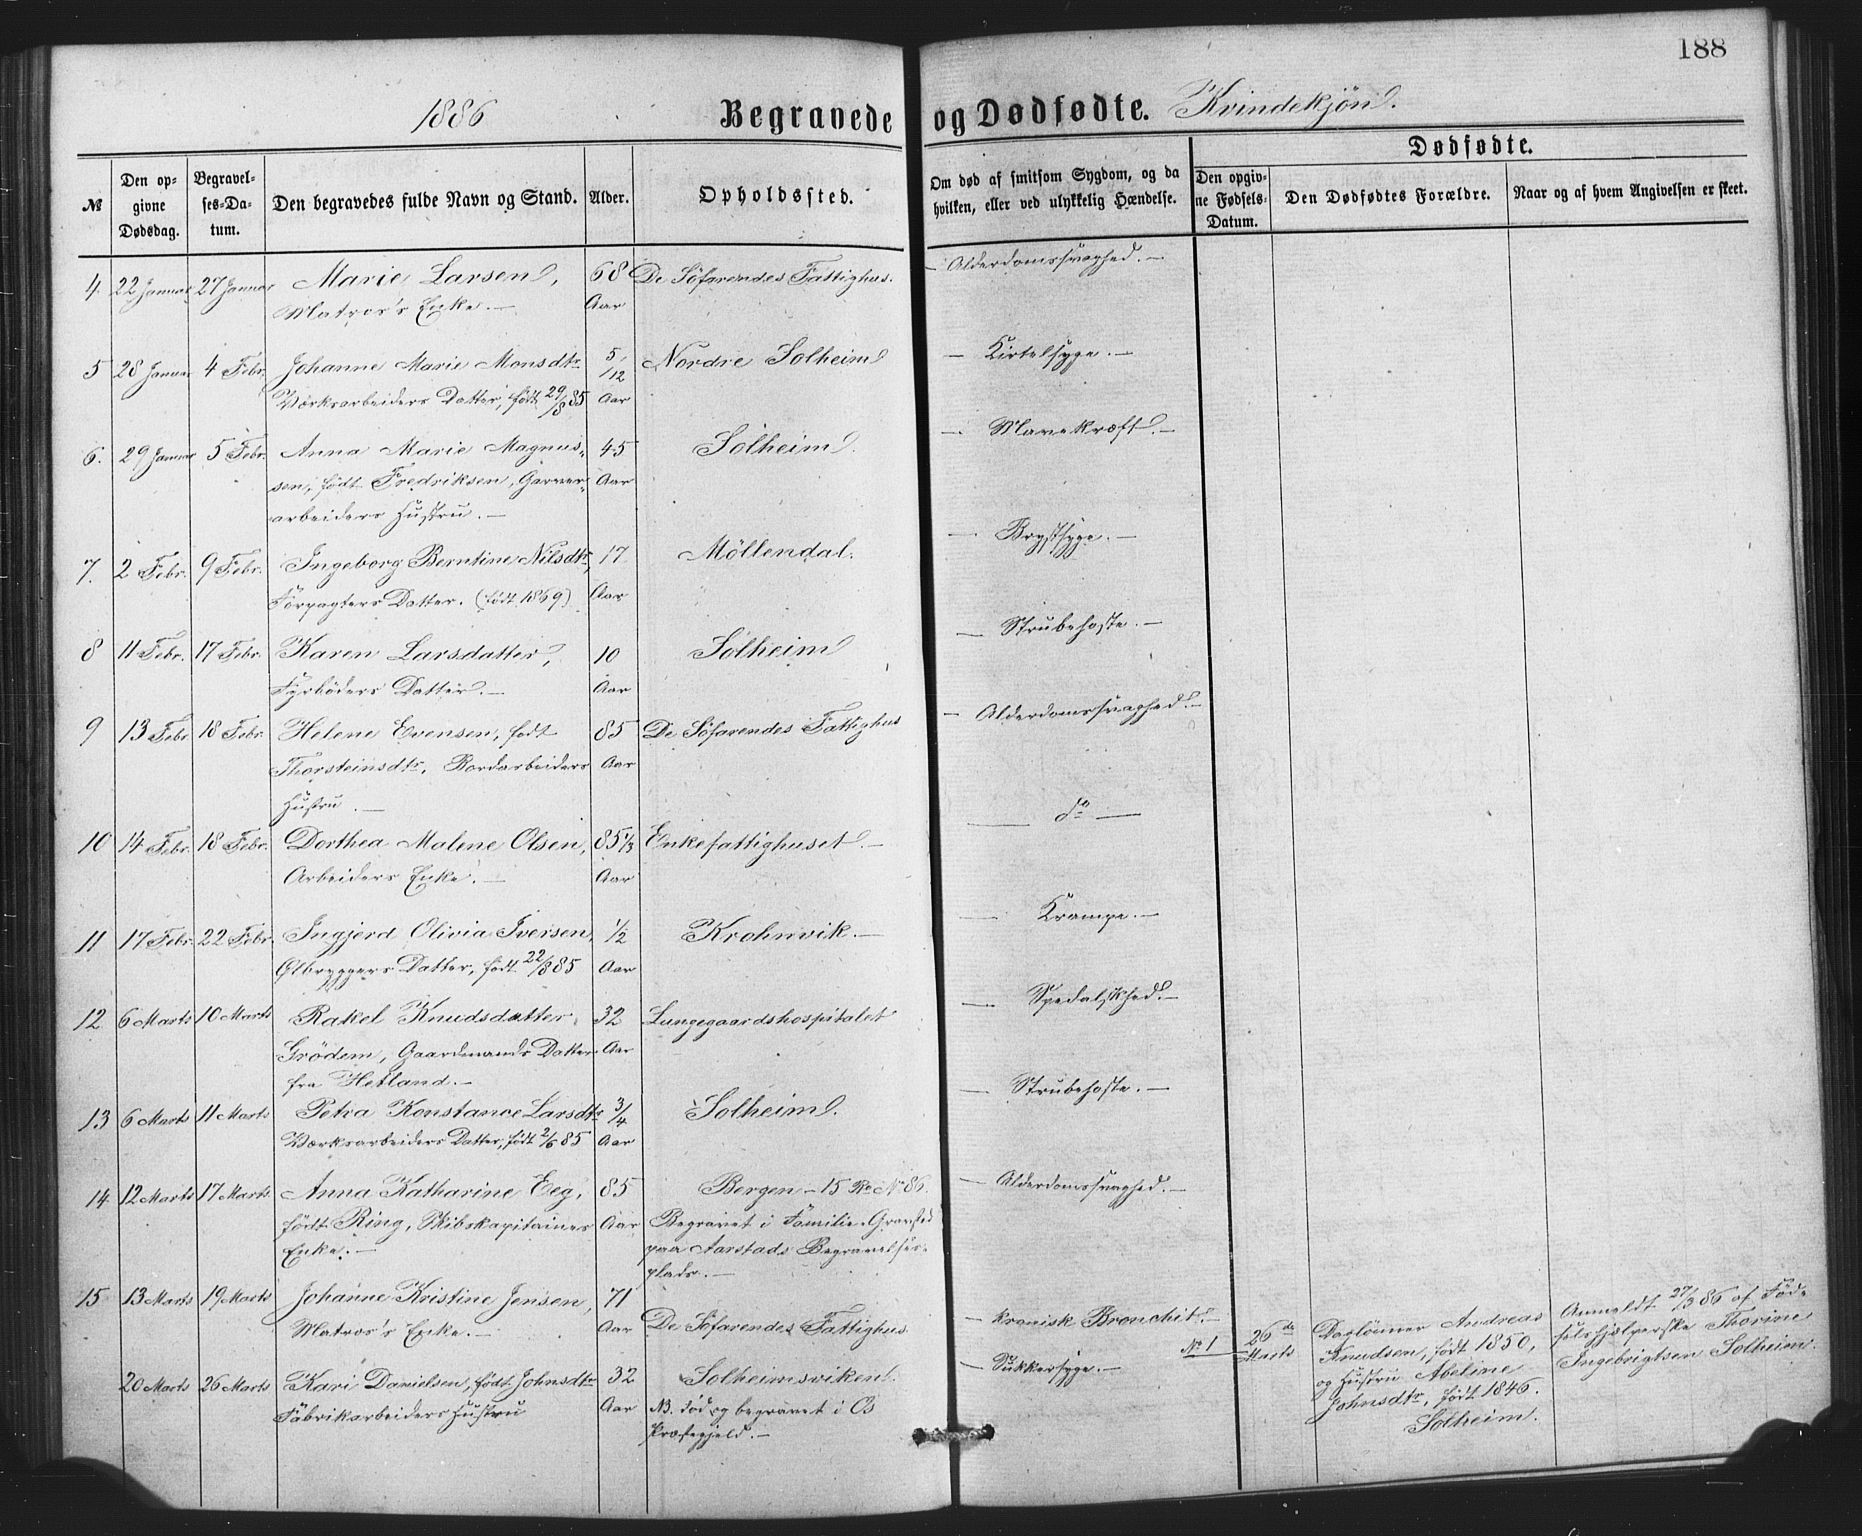 188
1886 Begravede og Dødfødte. Kvindekjøn.
№
Den opgivne Dødsdag.
Begravelses-Datum.
Den begravedes fulde Navn og Stand.
Alder.
Opholdssted.
Om død af smitsom Sygdom, og da hvilken, eller ved ulykkelig Hændelse.
Dødfødte.
Den opgivne Fødsels-Datum.
Den Dødfødtes Forældre.
Naar og af hvem Angivelsen er skeet.
4. 22 Januar 27 Januar Marie Larsen, 68 De Söfarendes Fattighus. — Alderdomssvaghed. —
Matros's Enke. — Aar
5 28 Januar 4 Febr. Johanne Marie Monsdtr 5/12 Nordre Solheim — Kirtelsyge. —
Værksarbeiders Datter, født 29/8 85 Aar
6. 29 Januar 5 Febr. Anna Marie Magnus- 45 Solheim. — Mavekræft. —
sen, født Fredriksen, Garver- Aar
arbeiders Hustru. —
7. 2 Febr. 9 Febr. Ingeborg Berntine Nilsdtr, 17 Möllendal. — Brystsyge. —
Forpagters Datter. (født 1869) Aar
8 11 Febr. 17 Febr. Karen Larsdatter, 10 Solheim — Strubehoste. —
Fyrböders Datter. — Aar
9 13 Febr 18 Febr. Helene Evensen, født 85 De Söfarendes Fattighus — Alderdomssvaghed. —
Thorsteinsdtr, Bordarbeiders Aar
Hustru. —
10 14 Febr. 18 Febr. Dorthea Malene Olsen, 85 1/3 Enkefattighuset. — — do —
Arbeiders Enke. — Aar
11 17 Febr. 22 Febr. Ingjerd Olivia Iversen, 1/2 Krohnvik. — — Krampe. —
Ølbryggers Datter, født 22/8 85 Aar
12 6 Marts 10 Marts Rakel Knudsdatter 32 Lungegaardshospitalet — Spedalskhed. —
Grödem, Gaardmands Datter Aar
fra Hetland. —
13 6 Marts 11 Marts Petra Konstance Larsdtr 3/4 Solheim. — Strubehoste. —
Værksarbeiders Datter, født 2/6 85 Aar
14 12 Marts 17 Marts Anna Katharine Eeg, 85 Bergen — 15 Ro. No 86. — Alderdomssvaghed. —
født Ring, Skibskapitaines Aar Begravet i Familie-Gravsted
Enke. — paa Aarstads Begravelses-
plads. —
15 13 Marts 19 Marts Johanne Kristine Jensen, 71
Matros's Enke. — Aar De Söfarendes Fattighus — kronisk Bronchit. —
20 Marts 26 Marts Kari Danielsen, født Johnsdtr 32 Solheimsviken. — Sukkersyge. —
Fabrikarbeiders Hustru Aar NB. død og begravet i Os
Præstegjeld. —
No 1 26de Marts
Daglönner Andreas
Knudsen, født 1850,
og Hustru Abeline
Johnsdtr, født 1846.
Solheim.
Anmeldt 27/3 86 af Fød-
selshjælperske Thorine
Ingebrigtsen Solheim.